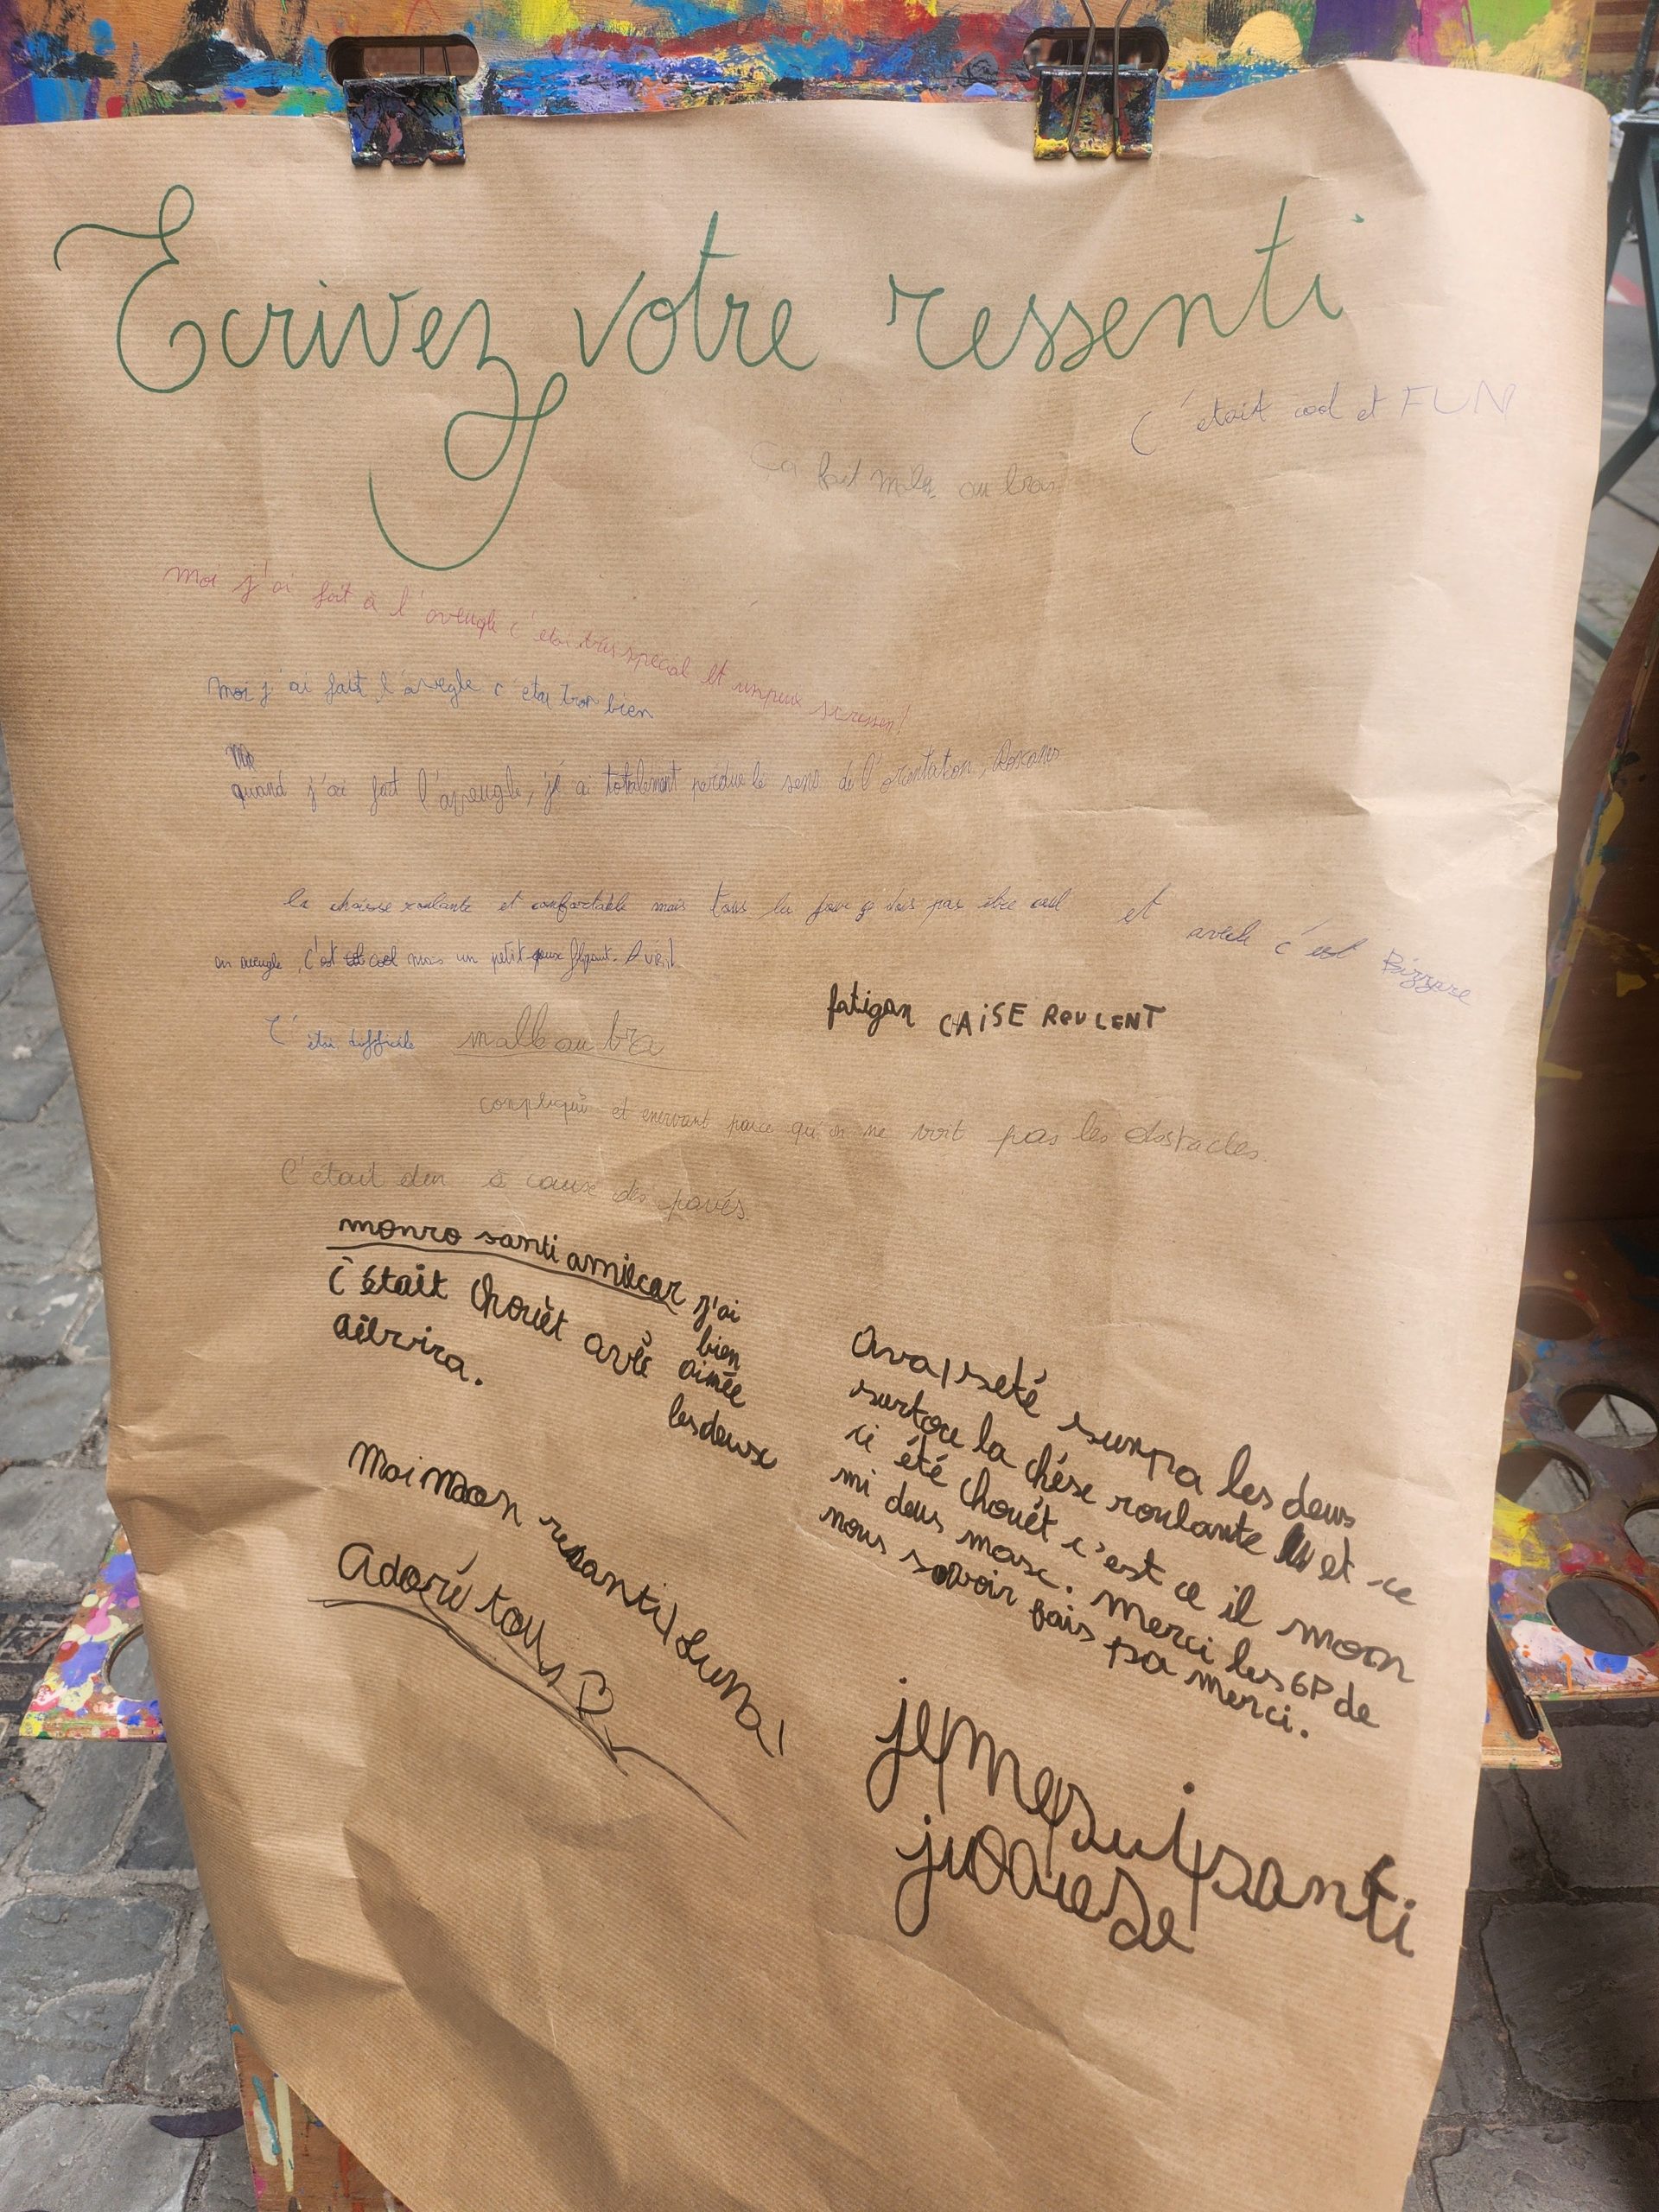 Ecrivez votre ressenti
C'était cool et FUN
Ca fait mal au bras
Moi j'ai fait à l'aveugle c'etai très special et unpeux stressen!
Moi j'ai fait l'avegle c'etai trop bien
quand j'ai fait l'aveugle, j'ai totalement perdue le sens de l'orientation,
la chaisse roulante et confortable mais tous la jour ça dois pas être cool et
avele c'est Bizzare
en aveugle, c'est cool mais un petit peux flipant. Avril
C'étai difficile malle au bra
fatigan CAISE ROULENT
conpliqué et enervant parce qu'on ne voit pas les obstacles.
C'était dur à cause des pavés.
monro santi amilcar j'ai
bien
aimée
les deux
C'était Chouèt avec
Ava j seté sunpa les deus
surtou la chése roulante et se
si été Chouét c'est ce il moon
mi deus masc. Merci les 6P de
nous savoir fais pa merci.
Moi moon resanti Luna!
Adoré tous
je me sui santi